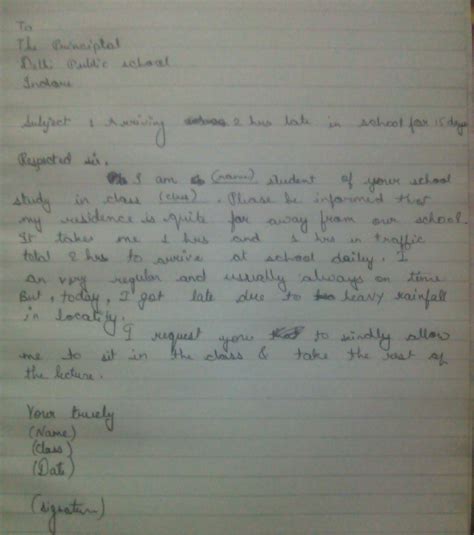 To
The Principtal
Delhi Public school
Indore
Subject : Arriving 2 hrs late in school for 15 days
Respected sir,
I am (name) student of your school
study in class (class). Please be informed that
my residence is quite far away from our school.
It takes me 1 hrs and 1 hrs in traffic
total 2 hrs to arrive at school daily. I
am very regular and usually always on time
But, today, I got late due to heavy rainfall
in locality.
I request you to kindly allow
me to sit in the class & take the rest of
the lecture.
Your truely
(Name)
(Class)
(Date)
(signature)